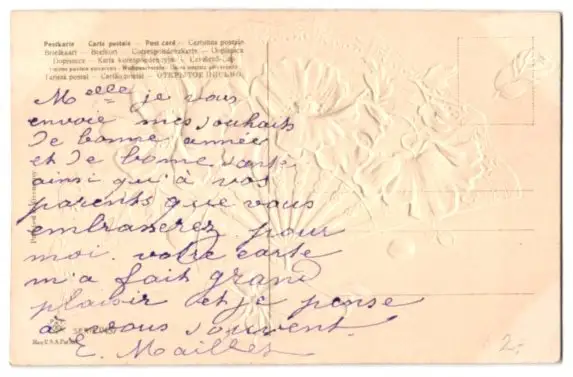 Postkarte — Carte postale — Post card — Cartolina postale
Briefkaart — Brefkort — Correspondenzkarte —
— Karta korespondencyjna —
Tarjeta postal — — ОТКРЫТОЕ ПИСЬМО
Melle je vous
envoie mes souhaits
de bonne année
et de bonne santé
ainsi qu'à vos
parents que vous
embrasserez pour
moi votre carte
m'a fait grand
plaisir et je pense
à vous souvent.
E. Mailles
2.-